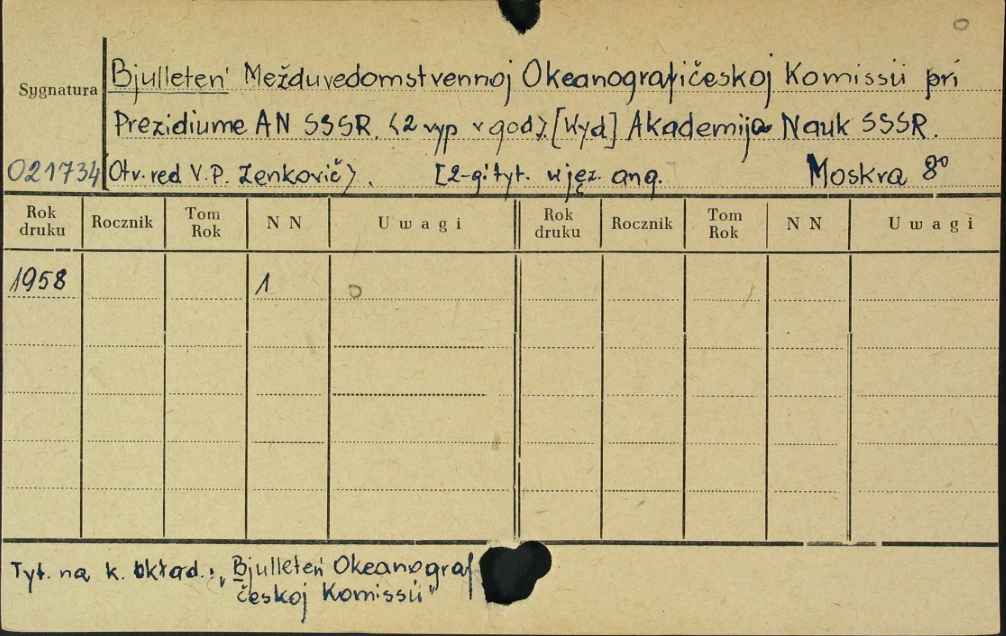 Bjulleten' Mežduvedomstvennoj Okeanografičeskoj Komissii pri
Sygnatura
Prezidiume AN SSSR. <2 vyp v god>. [Wyd] Akademija Nauk SSSR.
021734 Otv. red V.P. Zenkovič>. [2-gi tyt. w jęz. ang. Moskra 8°
Rok druku Rocznik Tom Rok N N Uwagi Rok druku Rocznik Tom Rok N N Uwagi
1958 1
Tyt. na k. okład.: „Bjulleteń Okeanograf
českoj Komissii"